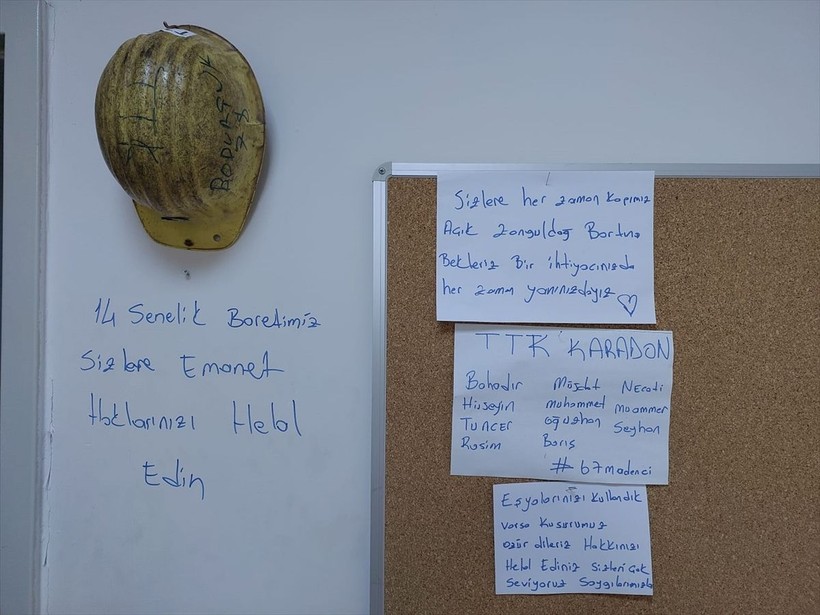 TTK
BODURTUK
14 Senelik Baretimiz
Sizlere Emanet
Haklarınızı Helal
Edin
Sizlere her zaman kapımız
Açık Zonguldağ Bartına
Bekleriz Bir ihtiyacınızda
her zaman yanınızdayız
TTK KARADON
Bahadır Müjdat Necati
Hüseyin Muhammet Muammer
TUNCER Oğuzhan Seyhan
Rasim Barış
#67madenci
Eşyalarınızı kullandık
varsa kusurumuz
özür dileriz Hakkınızı
Helal Ediniz Sizleri Çok
Seviyoruz Saygılarımızla